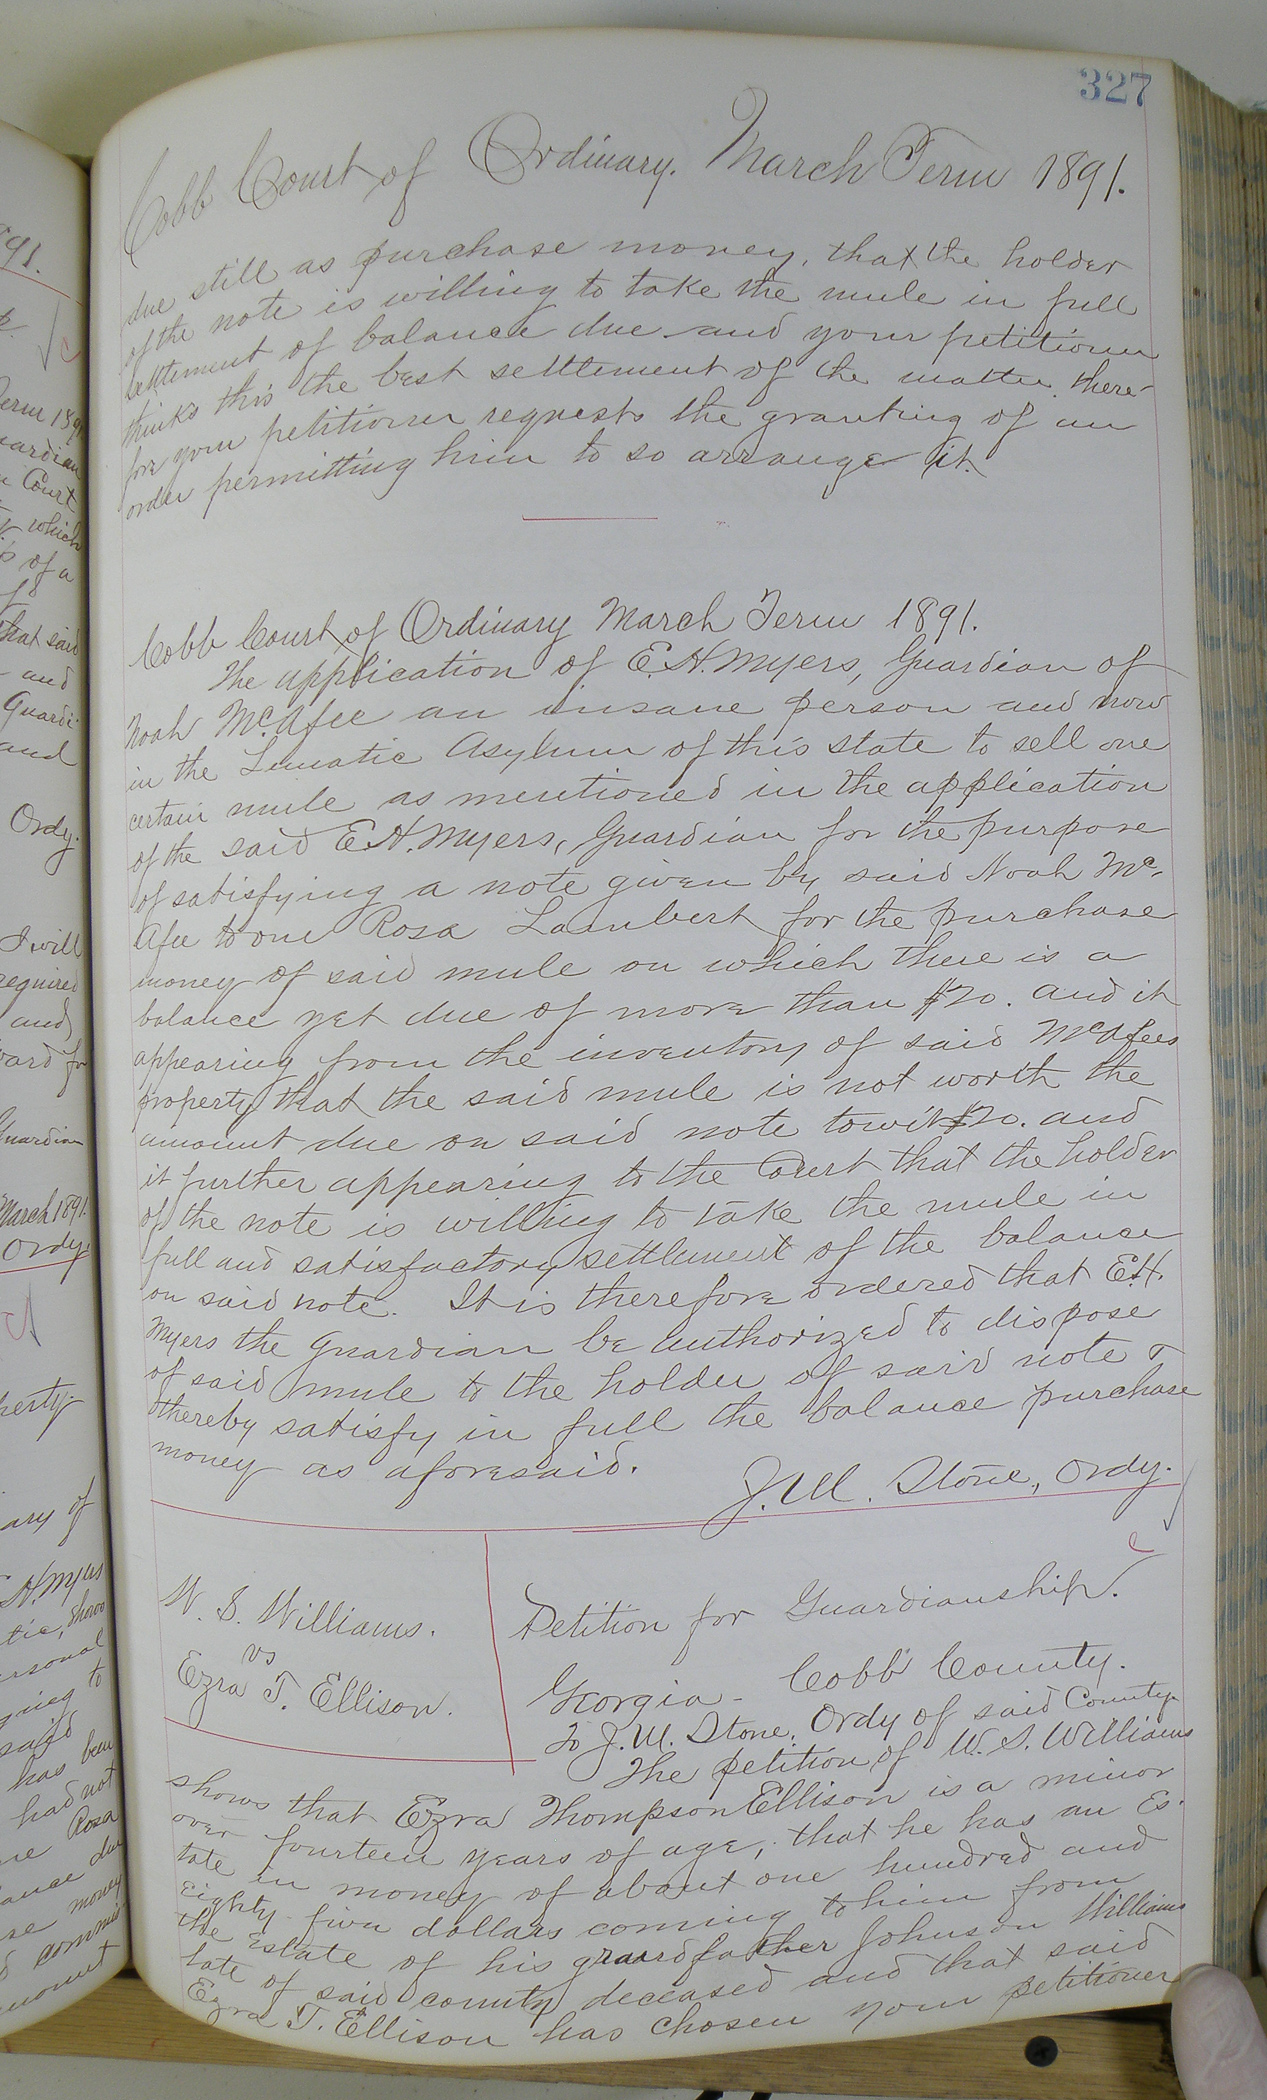 327
Cobb Court of Ordinary. March Term 1891.
due still as purchase money, that the holder
of the note is willing to take the mule in full
settlement of balance due and your petitioner
thinks this the best settlement of the matter. there-
fore your petitioner requests the granting of an
order permitting him to so arrange it.
Cobb Court of Ordinary March Term 1891.
The application of E.H. Myers, Guardian of
Noah McAfee an insane person and now
in the Lunatic Asylum of this state to sell one
certain mule as mentioned in the application
of the said E.H. Myers, Guardian for the purpose
of satisfying a note given by said Noah Mc-
Afee to one Rosa Lambert for the purchase
money of said mule on which there is a
balance yet due of more than $20. and it
appearing from the inventory of said McAfees
property that the said mule is not worth the
amount due on said note towit $20. and
it further appearing to the Court that the holder
of the note is willing to take the mule in
full and satisfactory settlement of the balance
on said note. It is therefore ordered that E.H.
Myers the Guardian be authorized to dispose
of said mule to the holder of said note &
thereby satisfy in full the balance purchase
money as aforesaid.
J.M. Stone, Ordy.
W. S. Williams.
vs
Ezra T. Ellison.
Petition for Guardianship.
Georgia - Cobb County.
To J.M. Stone, Ordy of said County.
The petition of W. S. Williams
shows that Ezra Thompson Ellison is a minor
over fourteen years of age, that he has an Es-
tate in money of about one hundred and
eighty five dollars coming to him from
the Estate of his grandfather Johnson Williams
late of said county deceased and that said
Ezra T. Ellison has chosen your petitioner